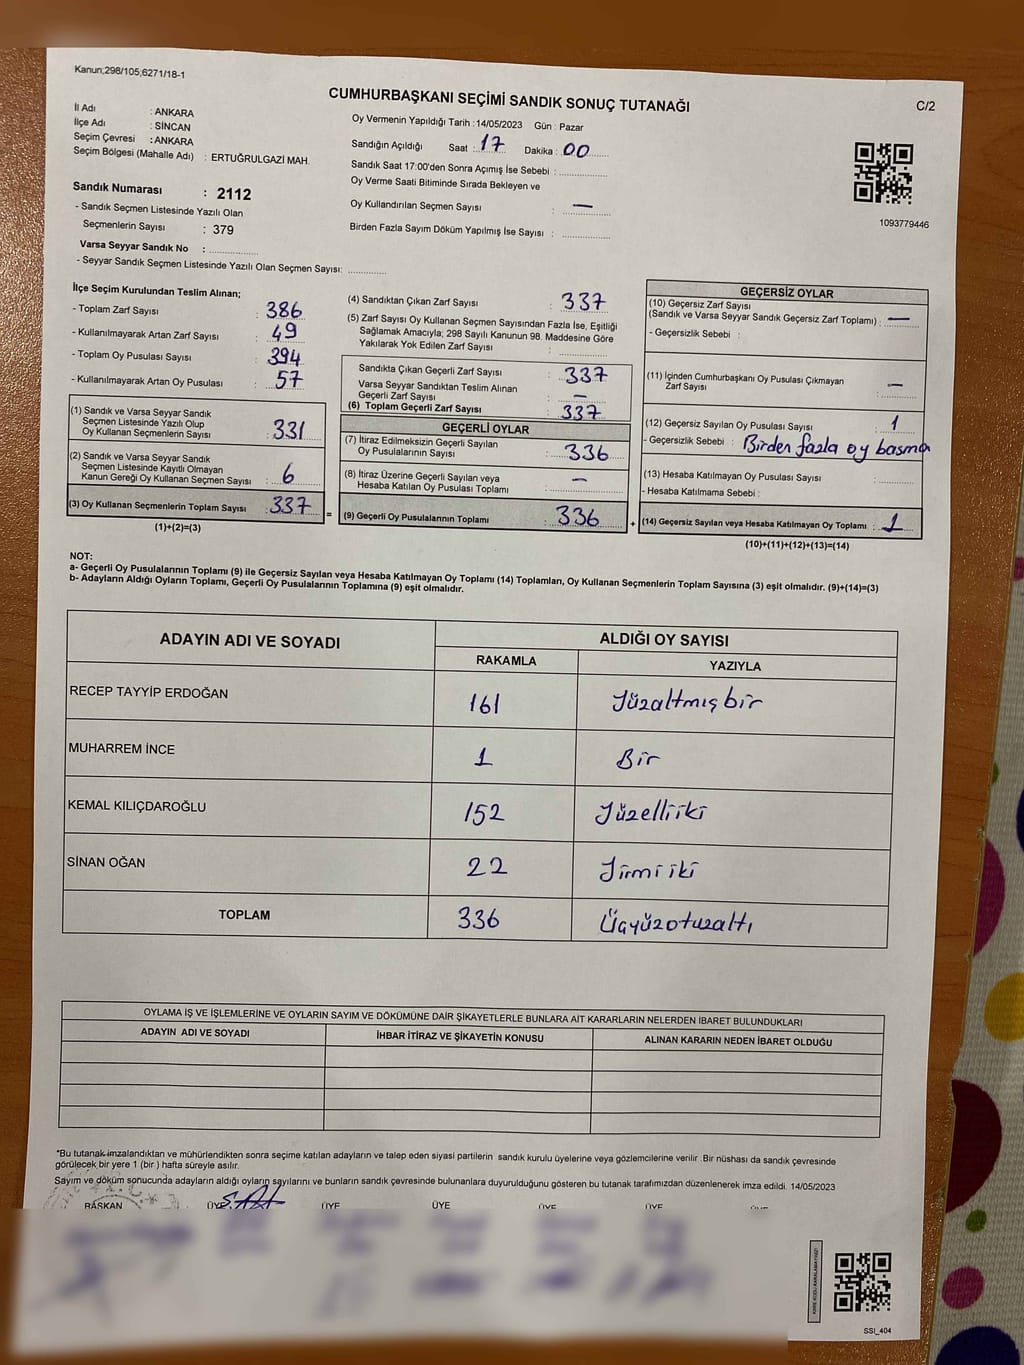 Kanun;298/105;6271/18-1
CUMHURBAŞKANI SEÇİMİ SANDIK SONUÇ TUTANAĞI
C/2
İl Adı : ANKARA
İlçe Adı : SİNCAN
Seçim Çevresi : ANKARA
Seçim Bölgesi (Mahalle Adı) : ERTUĞRULGAZİ MAH.
Sandık Numarası : 2112
- Sandık Seçmen Listesinde Yazılı Olan
Seçmenlerin Sayısı : 379
Varsa Seyyar Sandık No :
- Seyyar Sandık Seçmen Listesinde Yazılı Olan Seçmen Sayısı:
Oy Vermenin Yapıldığı Tarih : 14/05/2023 Gün : Pazar
Sandığın Açıldığı Saat : 17 Dakika : 00
Sandık Saat 17:00'den Sonra Açımış İse Sebebi :
Oy Verme Saati Bitiminde Sırada Bekleyen ve
Oy Kullandırılan Seçmen Sayısı : —
Birden Fazla Sayım Döküm Yapılmış İse Sayısı :
1093779446
İlçe Seçim Kurulundan Teslim Alınan;
- Toplam Zarf Sayısı : 386
- Kullanılmayarak Artan Zarf Sayısı : 49
- Toplam Oy Pusulası Sayısı : 394
- Kullanılmayarak Artan Oy Pusulası : 57
(1) Sandık ve Varsa Seyyar Sandık
Seçmen Listesinde Yazılı Olup
Oy Kullanan Seçmenlerin Sayısı : 331
(2) Sandık ve Varsa Seyyar Sandık
Seçmen Listesinde Kayıtlı Olmayan
Kanun Gereği Oy Kullanan Seçmen Sayısı : 6
(3) Oy Kullanan Seçmenlerin Toplam Sayısı : 337
(1)+(2)=(3)
=
(4) Sandıktan Çıkan Zarf Sayısı : 337
(5) Zarf Sayısı Oy Kullanan Seçmen Sayısından Fazla İse, Eşitliği
Sağlamak Amacıyla; 298 Sayılı Kanunun 98. Maddesine Göre
Yakılarak Yok Edilen Zarf Sayısı :
Sandıkta Çıkan Geçerli Zarf Sayısı : 337
Varsa Seyyar Sandıktan Teslim Alınan
Geçerli Zarf Sayısı : —
(6) Toplam Geçerli Zarf Sayısı : 337
GEÇERLİ OYLAR
(7) İtiraz Edilmeksizin Geçerli Sayılan
Oy Pusulalarının Sayısı : 336
(8) İtiraz Üzerine Geçerli Sayılan veya
Hesaba Katılan Oy Pusulası Toplamı : —
(9) Geçerli Oy Pusulalarının Toplamı : 336
+
GEÇERSİZ OYLAR
(10) Geçersiz Zarf Sayısı
(Sandık ve Varsa Seyyar Sandık Geçersiz Zarf Toplamı) : —
- Geçersizlik Sebebi :
(11) İçinden Cumhurbaşkanı Oy Pusulası Çıkmayan
Zarf Sayısı : —
(12) Geçersiz Sayılan Oy Pusulası Sayısı : 1
- Geçersizlik Sebebi : Birden fazla oy basma
(13) Hesaba Katılmayan Oy Pusulası Sayısı :
- Hesaba Katılmama Sebebi :
(14) Geçersiz Sayılan veya Hesaba Katılmayan Oy Toplamı : 1
(10)+(11)+(12)+(13)=(14)
NOT:
a- Geçerli Oy Pusulalarının Toplamı (9) ile Geçersiz Sayılan veya Hesaba Katılmayan Oy Toplamı (14) Toplamları, Oy Kullanan Seçmenlerin Toplam Sayısına (3) eşit olmalıdır. (9)+(14)=(3)
b- Adayların Aldığı Oyların Toplamı, Geçerli Oy Pusulalarının Toplamına (9) eşit olmalıdır.
ADAYIN ADI VE SOYADI ALDIĞI OY SAYISI
RAKAMLA YAZIYLA
RECEP TAYYİP ERDOĞAN 161 Yüzaltmışbir
MUHARREM İNCE 1 Bir
KEMAL KILIÇDAROĞLU 152 Yüzelliiki
SİNAN OĞAN 22 Yirmiiki
TOPLAM 336 Üçyüzotuzaltı
OYLAMA İŞ VE İŞLEMLERİNE VE OYLARIN SAYIM VE DÖKÜMÜNE DAİR ŞİKAYETLERLE BUNLARA AİT KARARLARIN NELERDEN İBARET BULUNDUKLARI
ADAYIN ADI VE SOYADI İHBAR İTİRAZ VE ŞİKAYETİN KONUSU ALINAN KARARIN NEDEN İBARET OLDUĞU
*Bu tutanak imzalandıktan ve mühürlendikten sonra seçime katılan adayların ve talep eden siyasi partilerin sandık kurulu üyelerine veya gözlemcilerine verilir. Bir nüshası da sandık çevresinde
görülecek bir yere 1 (bir) hafta süreyle asılır.
Sayım ve döküm sonucunda adayların aldığı oyların sayılarını ve bunların sandık çevresinde bulunanlara duyurulduğunu gösteren bu tutanak tarafımızdan düzenlenerek imza edildi. 14/05/2023
BAŞKAN ÜYE ÜYE ÜYE ÜYE ÜYE
SSI_404